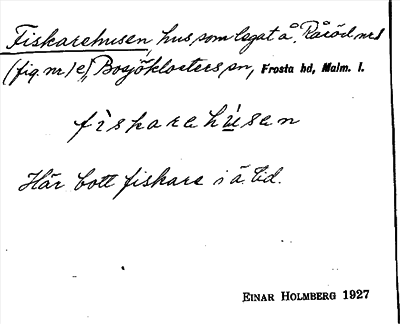 Fiskarehusen, hus, som legat å Råröd nr 1
(fig. nr 1 e), Bosjöklosters sn, Frosta hd, Malm. l.
fìskarehúsen
Här bott fiskare i ä. tid.
EINAR HOLMBERG 1927